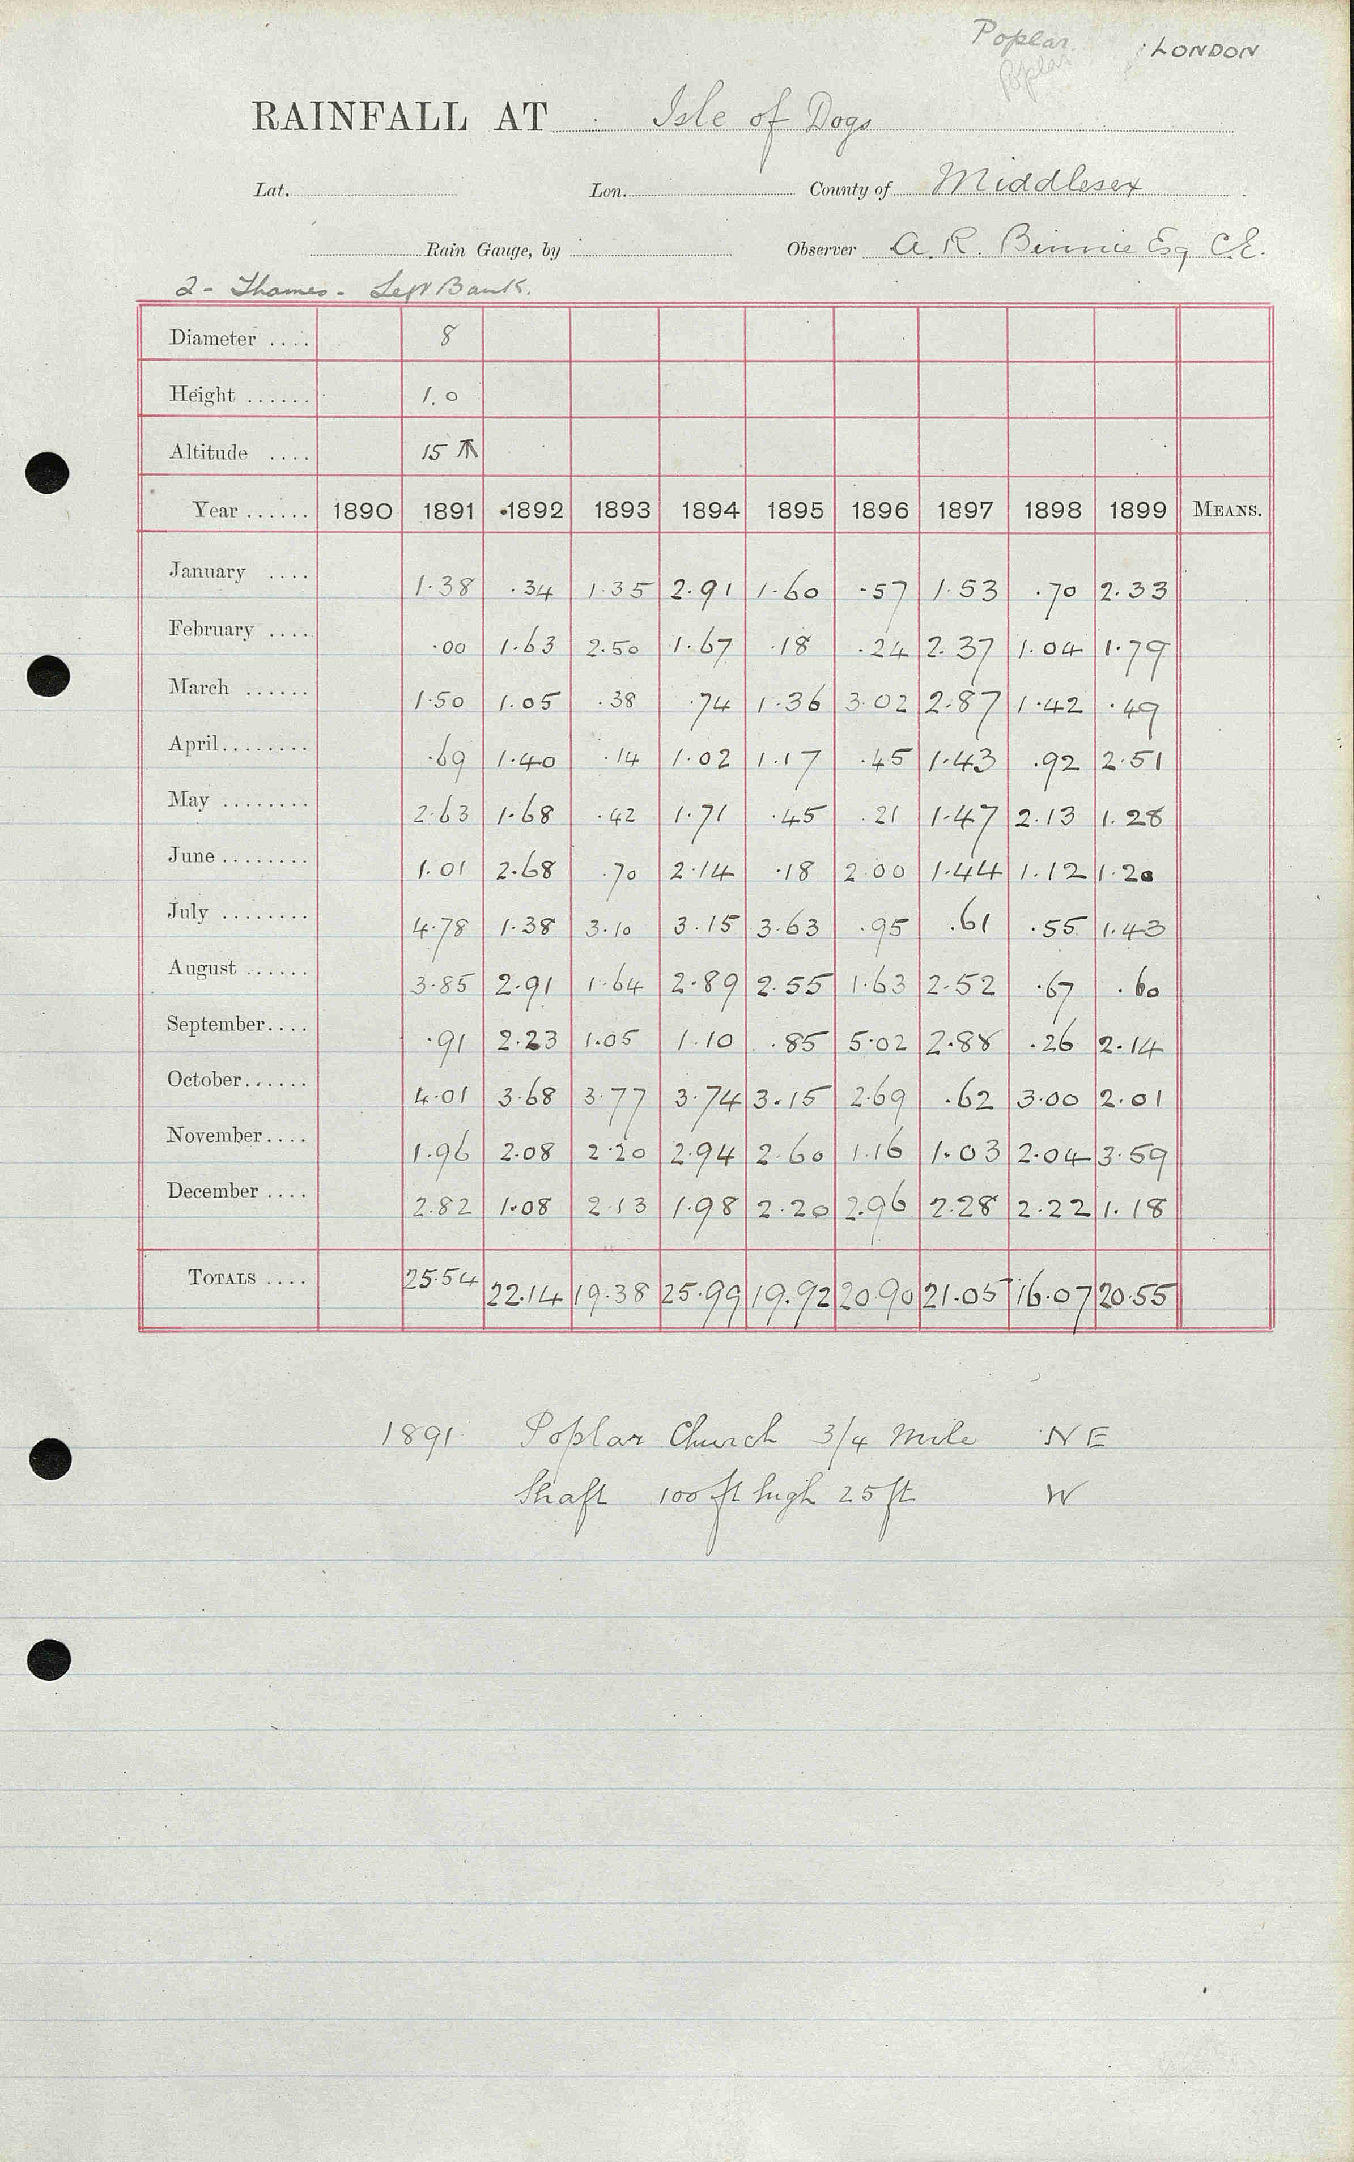 Poplar : LONDON
Poplar
RAINFALL AT Isle of Dogs
Lat. Lon. County of Middlesex
Rain Gauge, by Observer A. R. Binnie Esq C.E.
2 - Thames - Left Bank.
Diameter .... 8
Height ...... 1.0
Altitude .... 15
Year ...... 1890 1891 1892 1893 1894 1895 1896 1897 1898 1899 MEANS.
January .... 1.38 .34 1.35 2.91 1.60 .57 1.53 .70 2.33
February .... .00 1.63 2.50 1.67 .18 .24 2.37 1.04 1.79
March ...... 1.50 1.05 .38 .74 1.36 3.02 2.87 1.42 .49
April........ .69 1.40 .14 1.02 1.17 .45 1.43 .92 2.51
May ........ 2.63 1.68 .42 1.71 .45 .21 1.47 2.13 1.28
June ........ 1.01 2.68 .70 2.14 .18 2.00 1.44 1.12 1.20
July ........ 4.78 1.38 3.10 3.15 3.63 .95 .61 .55 1.43
August ...... 3.85 2.91 1.64 2.89 2.55 1.63 2.52 .67 .60
September.... .91 2.23 1.05 1.10 .85 5.02 2.88 .26 2.14
October...... 4.01 3.68 3.77 3.74 3.15 2.69 .62 3.00 2.01
November.... 1.96 2.08 2.20 2.94 2.60 1.16 1.03 2.04 3.59
December .... 2.82 1.08 2.13 1.98 2.20 2.96 2.28 2.22 1.18
TOTALS .... 25.54 22.14 19.38 25.99 19.92 20.90 21.05 16.07 20.55
1891. Poplar Church 3/4 Mile NE
Shaft 100 ft high 25 ft W